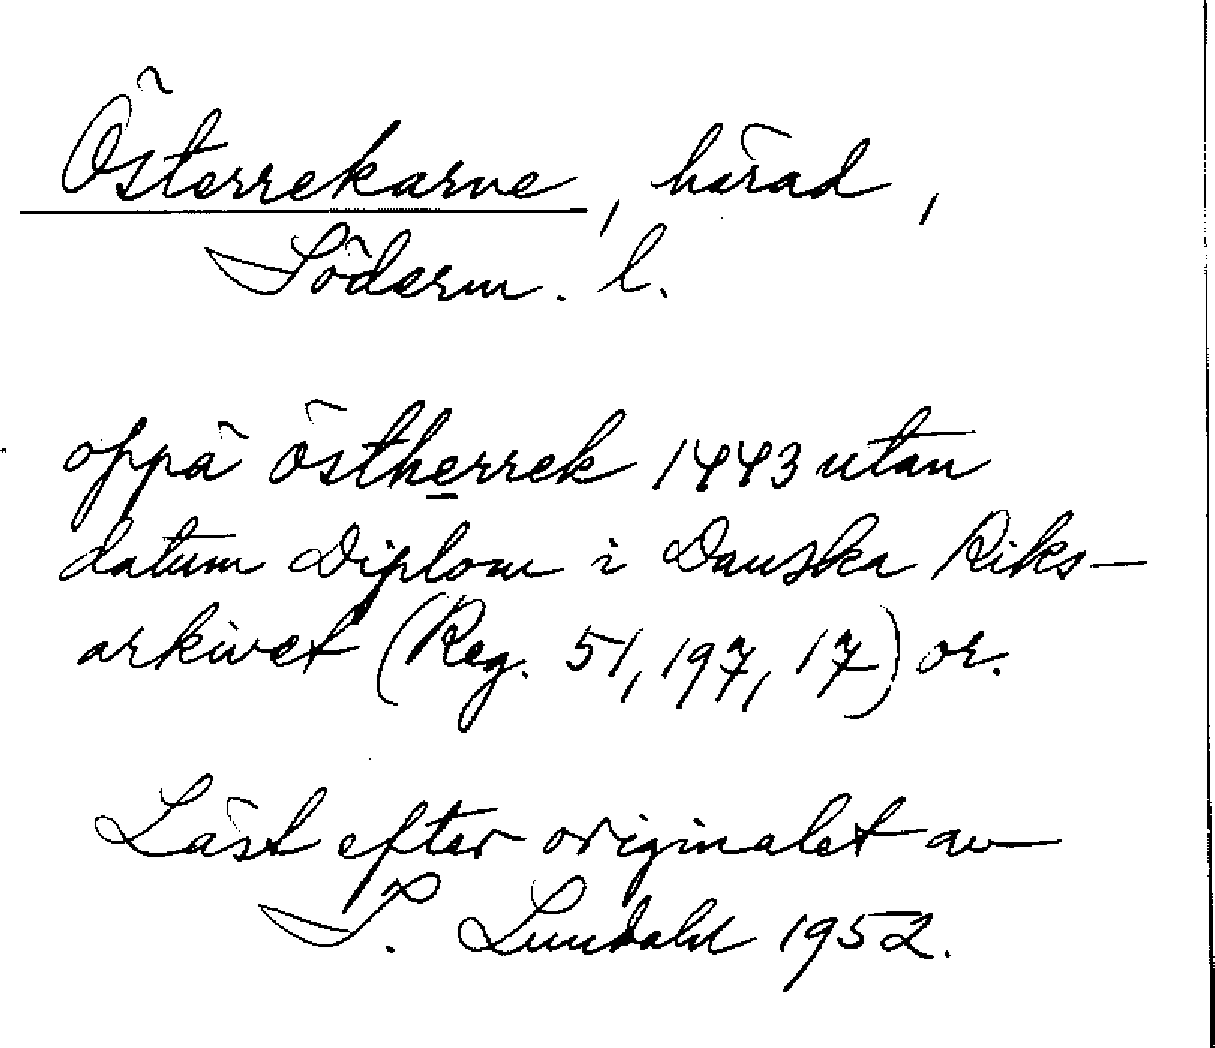 Österrekarne, härad,
Söderm. l.
oppå östherrek 1443 utan
datum Diplom i Danska Riks-
arkivet (Reg. 51, 197, 17) or.
Läst efter originalet av
I. Lundahl 1952.